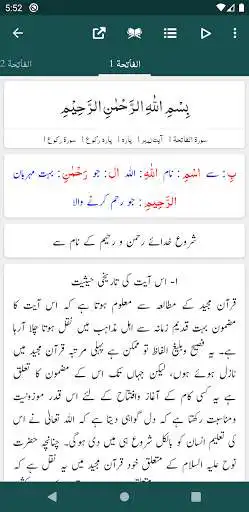 5:52
الفاتحة 1
الفاتحة 2
بِسْمِ اللّٰهِ الرَّحْمٰنِ الرَّحِیْمِ
سورۃ الفاتحة 1 آیتنمبر 1 پارہ 1 پارہ رکوع 1 سورۃ رکوع 1
بِ: سے اسْمِ: نام اللّٰهِ: اللہ ال: جو رَحْمٰنِ: بہت مہربان
الرَّحِیمِ: جو رحم کرنے والا
شروع خدائے رحمن و رحیم کے نام سے
۱- اس آیت کی تاریخی حیثیت
قرآن مجید کے مطالعہ سے معلوم ہوتا ہے کہ اس آیت کا
مضمون بہت قدیم زمانہ سے اہل مذاہب میں نقل ہوتا چلا آرہا
ہے۔ یہ فصیح وبلیغ الفاظ تو ممکن ہے پہلی مرتبہ قرآن مجید میں
نازل ہوئے ہوں، لیکن جہاں تک اس کے مضمون کا تعلق
ہے یہ کسی کام کے آغاز وافتتاح کے لئے اس قدر موزونیت
ومناسبت رکھتا ہے کہ دل گواہی دیتا ہے کہ اللہ تعالی نے اس
کی تعلیم انسان کو بالکل شروع ہی میں دی ہوگی۔ چنانچہ حضرت
نوح علیہ السلام کے متعلق خود قرآن مجید میں یہ نقل ہے کہ